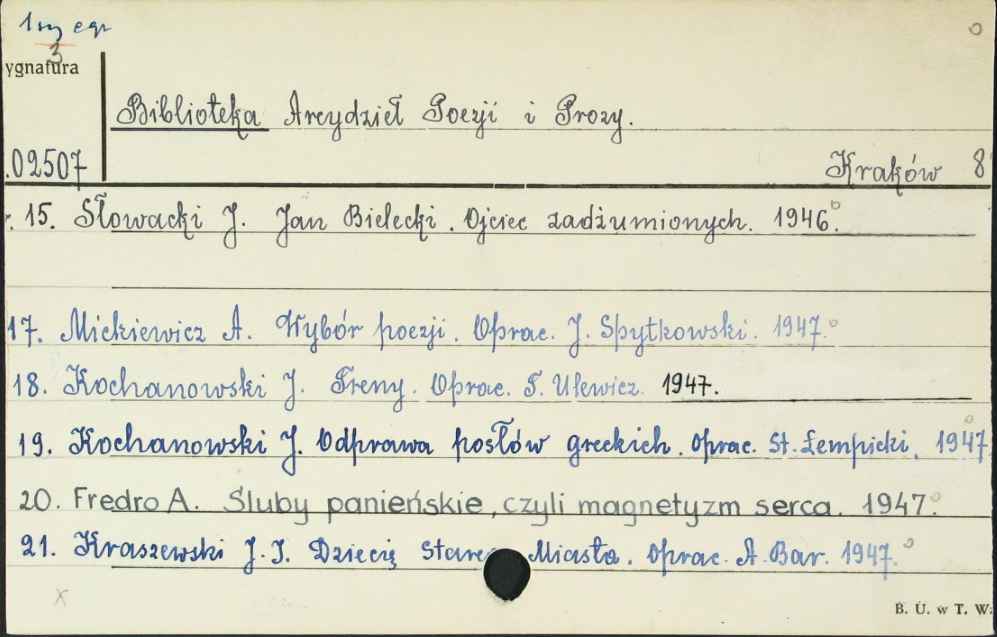 3
ygnatura
Biblioteka Arcydzieł Poezji i Prozy.
.02507
Kraków 8
15. Słowacki J. Jan Bielecki. Ojciec zadżumionych. 1946.
17. Mickiewicz A. Wybór poezji. Oprac. J. Spytkowski. 1947.
18. Kochanowski J. Treny. Oprac. T. Ulewicz. 1947.
19. Kochanowski J. Odprawa posłów greckich. Oprac. St. Łempicki. 1947
20. Fredro A. Śluby panieńskie, czyli magnetyzm serca. 1947.
21. Kraszewski J.I. Dziecię Stare Miasta. Oprac. A. Bar. 1947.
x
B. U. w T. W: